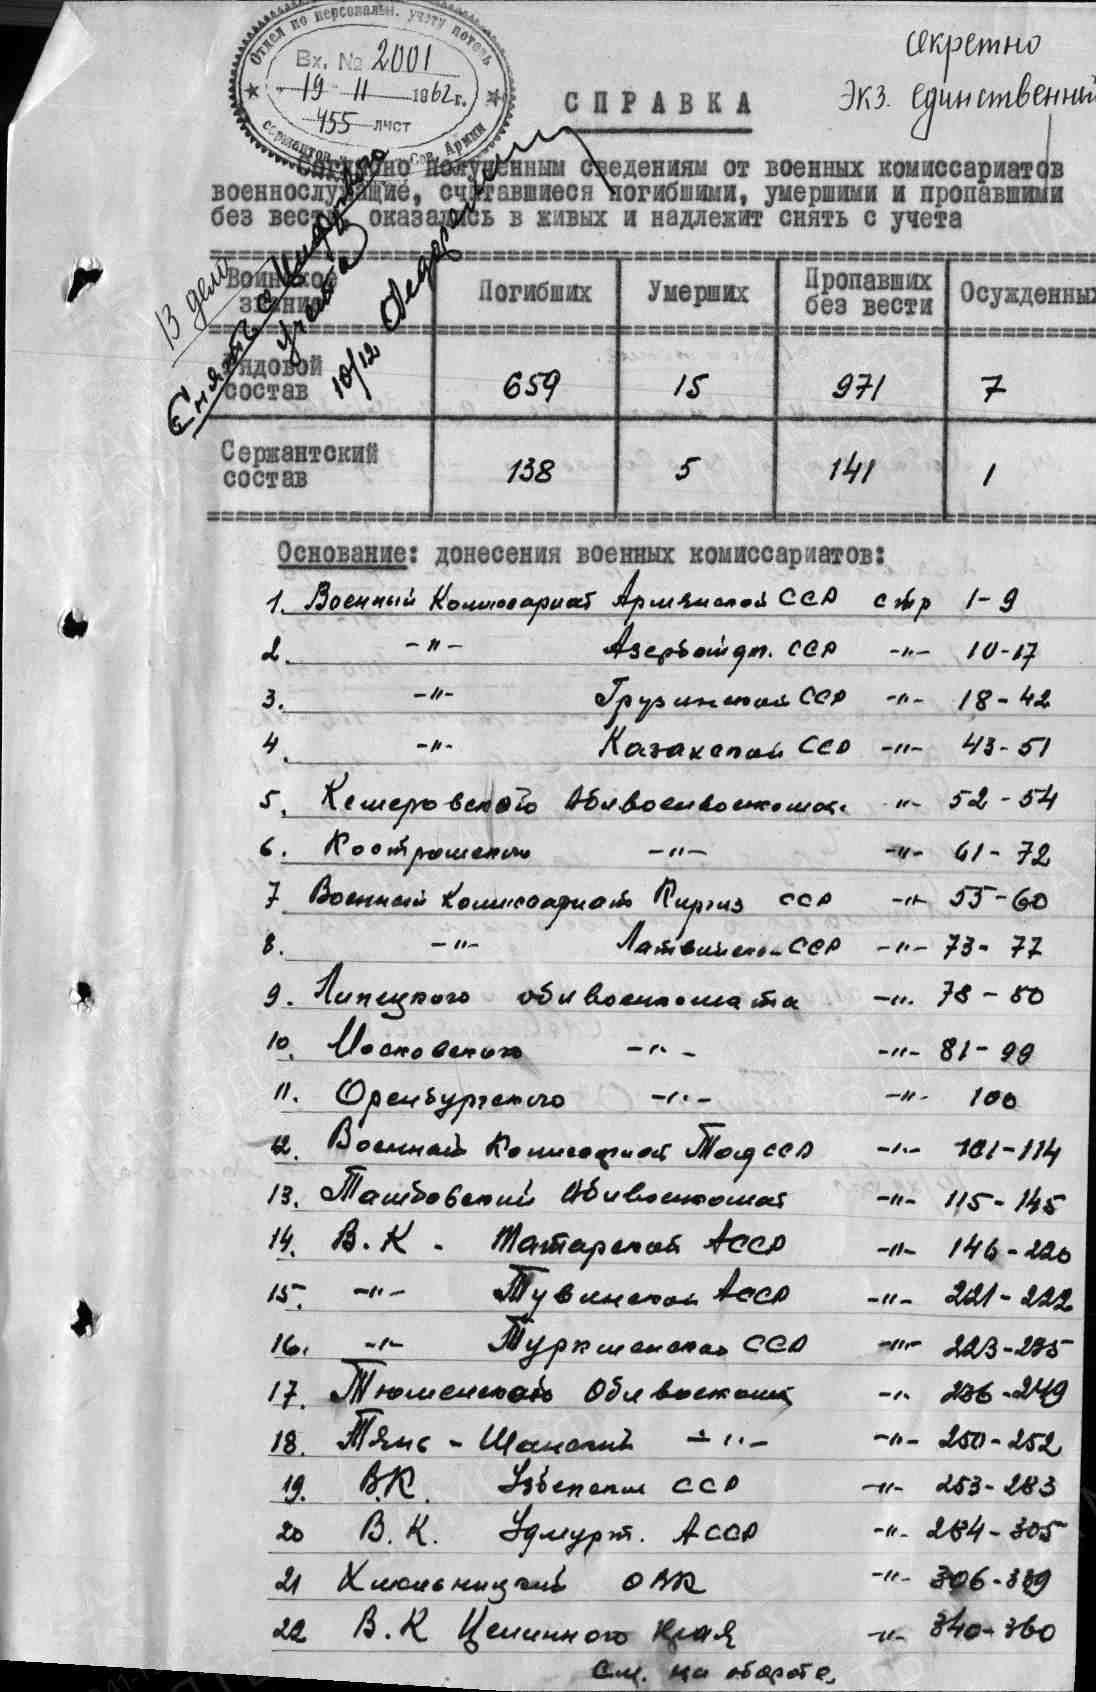 Отдел по персональн. учету потерь
сержантов и Сов. Армии
Вх. № 2001
19 11 1962 г.
455 лист
секретно
Экз. единственный
СПРАВКА
Согласно полученным сведениям от военных комиссариатов
военнослужащие, считавшиеся погибшими, умершими и пропавшими
без вести, оказались в живых и надлежит снять с учета
В дело
Снять с
учета
10/12
Воинское звание Погибших Умерших Пропавших без вести Осужденных
Рядовой состав 659 15 971 7
Сержантский состав 138 5 141 1
Основание: донесения военных комиссариатов:
1. Военный Комиссариат Армянской ССР стр 1-9
2. -"- Азербайдж. ССР -"- 10-17
3. -"- Грузинской ССР -"- 18-42
4. -"- Казахской ССР -"- 43-51
5. Кемеровского -"- 52-54
6. Костромского -"- -"- 61-72
7 Военный Комиссариат Киргиз ССР -"- 55-60
8. -"- Латвийской ССР -"- 73-77
9. Липецкого облвоенкомата -"- 78-80
10. Московского -"- -"- 81-99
11. Оренбургского -"- -"- 100
12. Военный Комиссариат Тад ССР -"- 101-114
13. Тамбовский Облвоенкомат -"- 115-145
14. В.К. Татарской АССР -"- 146-220
15. -"- Тувинской АССР -"- 221-222
16. -"- Туркменской ССР -"- 223-235
17. Тюменского Облвоенком -"- 236-249
18. Тянь-Шанский -"- -"- 250-252
19. В.К. Узбекской ССР -"- 253-283
20 В.К. Удмурт. АССР -"- 284-305
21 Хмельницкий ОВК -"- 306-339
22 В.К Целинного края -"- 340-360
См. на обороте.